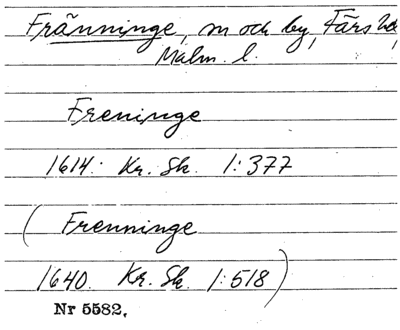 Fränninge, sn och by, Färs hd,
Malm. l.
Freninge
1614: Kr. Sk. 1:377
(Frenninge
1640. Kr. Sk. 1:518)
Nr 5582.